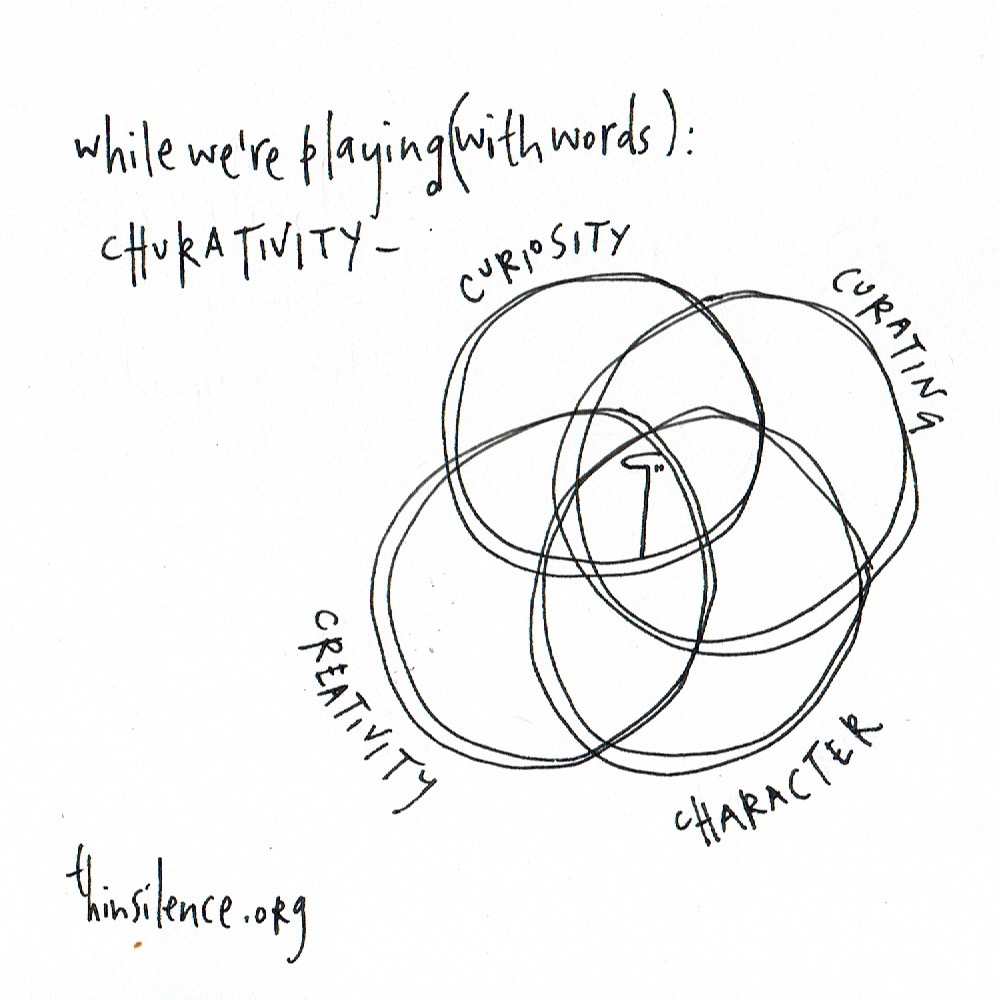 while we're playing(with words):
CHURATIVITY-
CURIOSITY
CURATING
CREATIVITY
CHARACTER
thinsilence.org